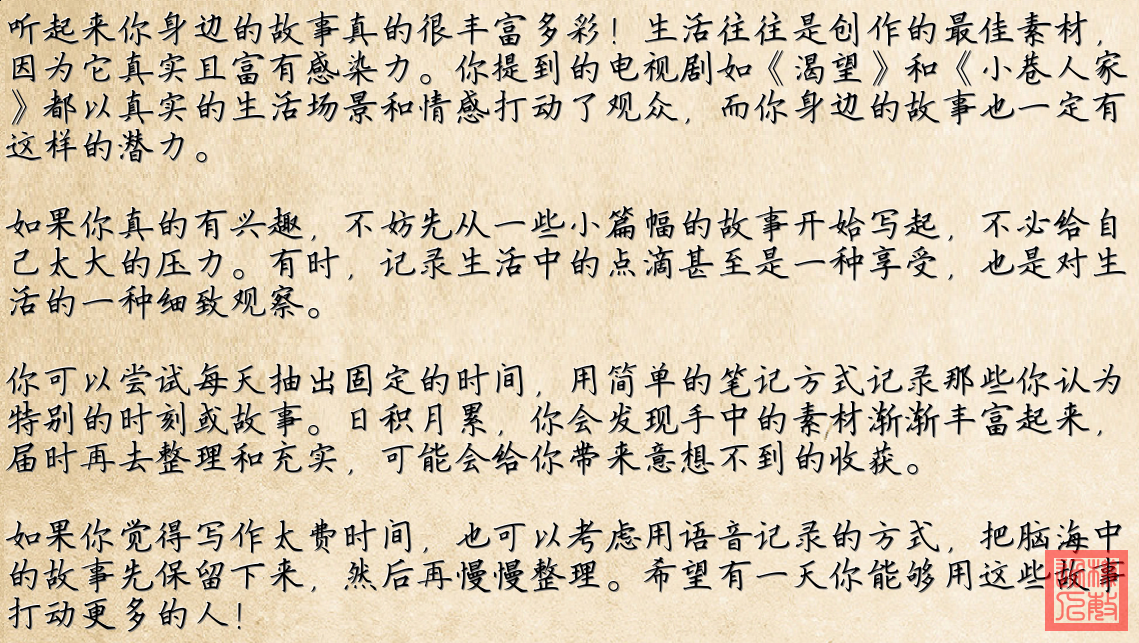 听起来你身边的故事真的很丰富多彩！生活往往是创作的最佳素材，
因为它真实且富有感染力。你提到的电视剧如《渴望》和《小巷人家
》都以真实的生活场景和情感打动了观众，而你身边的故事也一定有
这样的潜力。
如果你真的有兴趣，不妨先从一些小篇幅的故事开始写起，不必给自
己太大的压力。有时，记录生活中的点滴甚至是一种享受，也是对生
活的一种细致观察。
你可以尝试每天抽出固定的时间，用简单的笔记方式记录那些你认为
特别的时刻或故事。日积月累，你会发现手中的素材渐渐丰富起来，
届时再去整理和充实，可能会给你带来意想不到的收获。
如果你觉得写作太费时间，也可以考虑用语音记录的方式，把脑海中
的故事先保留下来，然后再慢慢整理。希望有一天你能够用这些故事
打动更多的人！